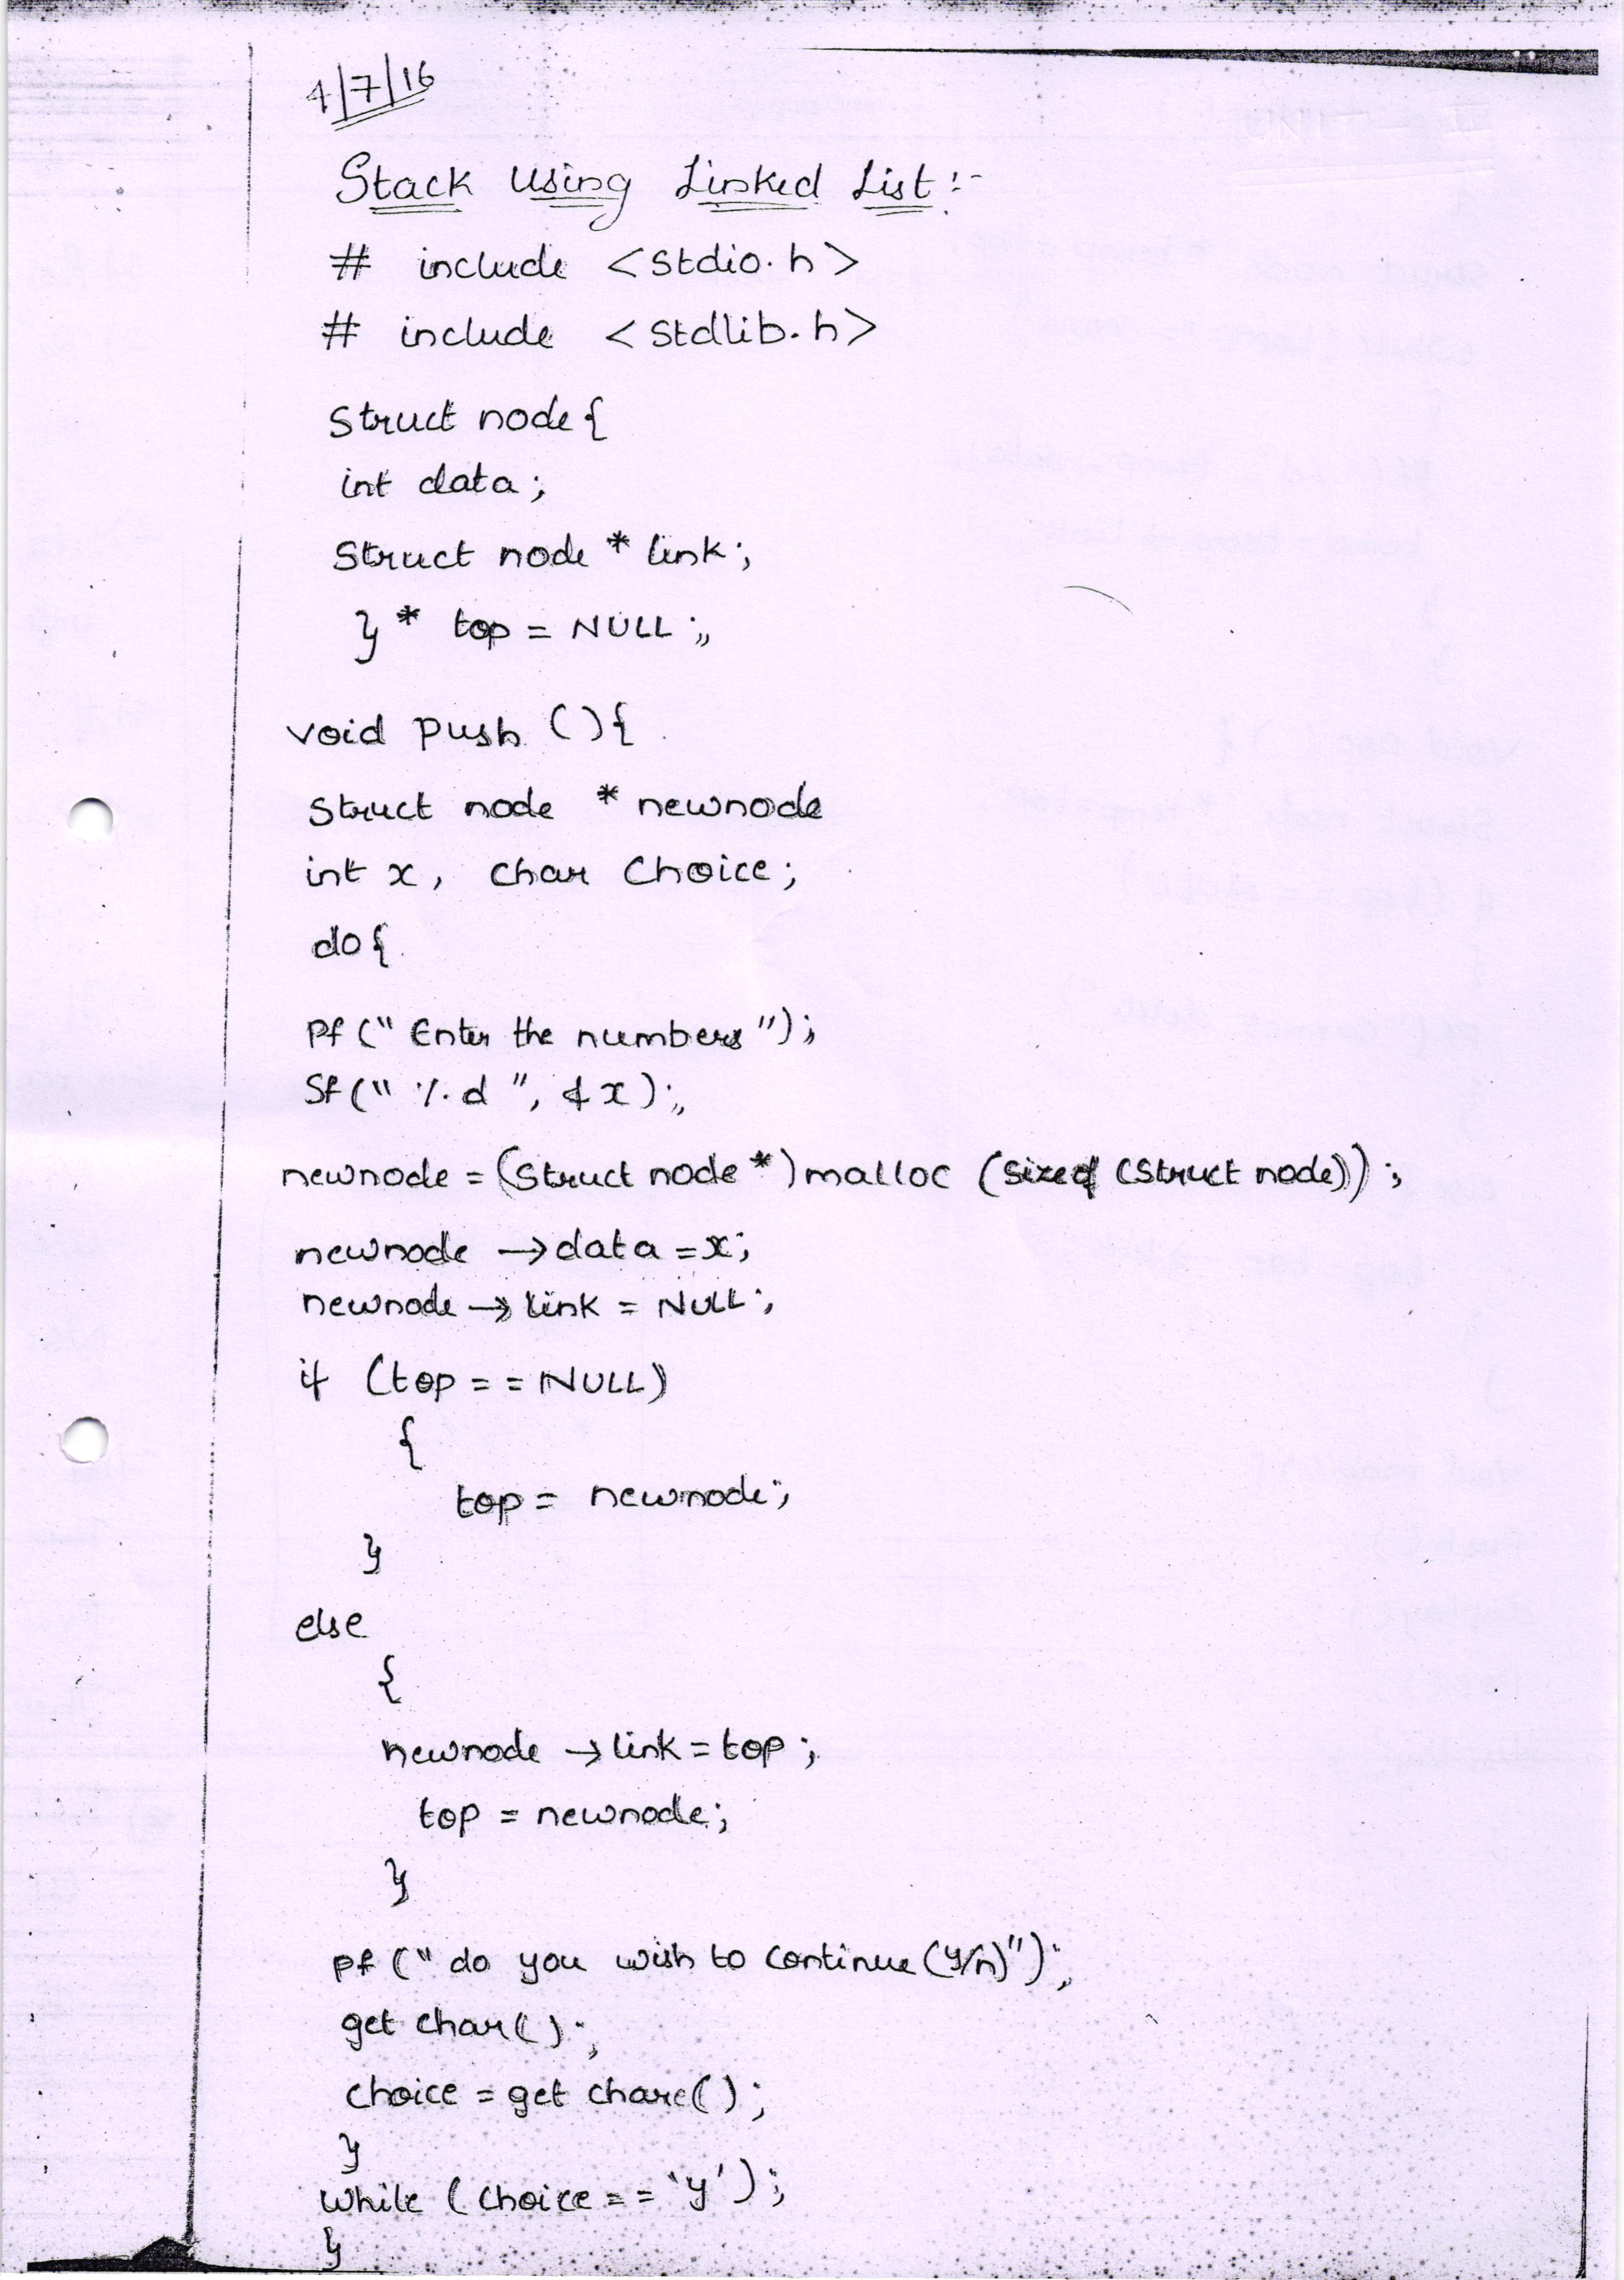 4/7/16
Stack Using Linked List :-
# include <stdio.h>
# include <stdlib.h>
struct node {
int data ;
struct node * link ;
} * top = NULL ;
void push () {
struct node * newnode
int x, char choice ;
do {
Pf (" Enter the numbers ") ;
Sf (" %d ", &x) ;
newnode = (struct node *) malloc (sizeof (struct node)) ;
newnode → data = x ;
newnode → link = NULL ;
if (top = = NULL)
{
top = newnode ;
}
else
{
newnode → link = top ;
top = newnode ;
}
pf (" do you wish to continue (y/n)") ;
get char() ;
choice = get chare() ;
}
while (choice = = 'y') ;
}